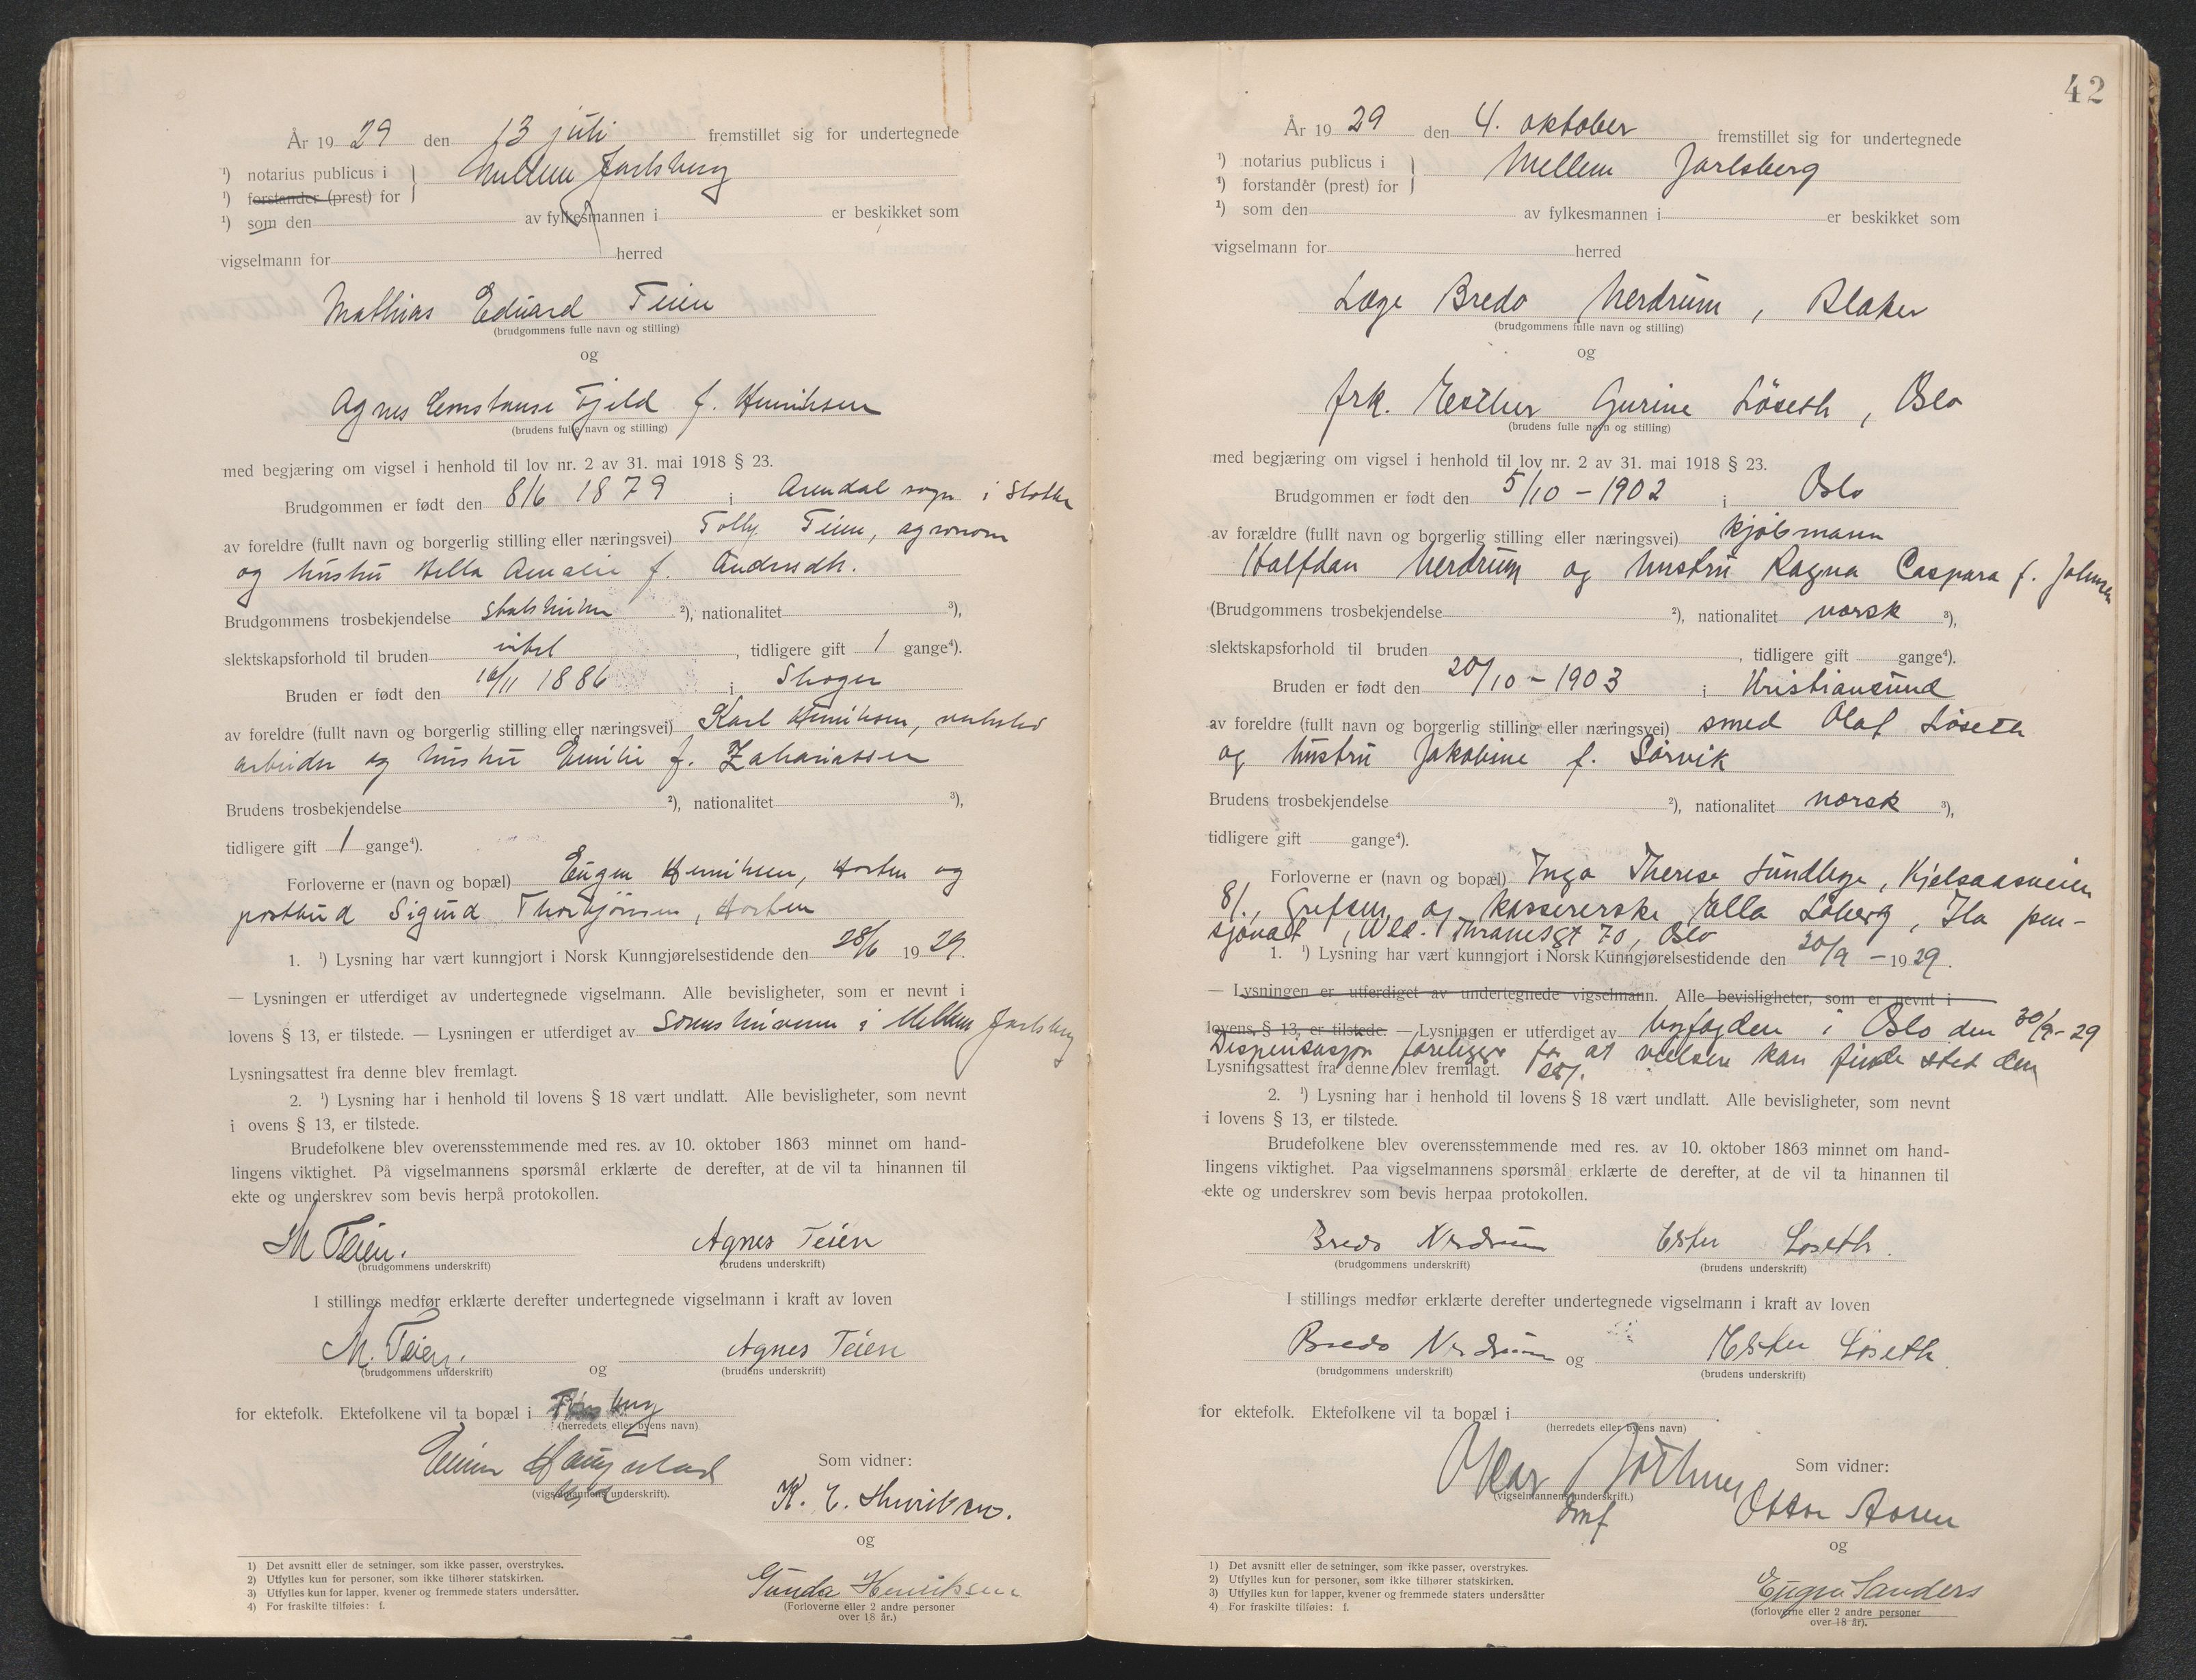 År 19 29 den 13 juli fremstillet sig for undertegnede
¹) notarius publicus i } Mellem Jarlsberg
¹) forstander (prest) for
¹) som den av fylkesmannen i er beskikket som
vigselmann for herred
Mathias Eduard Teien
(brudgommens fulle navn og stilling)
og
Agnes Constanse Fjeld f. Henriksen
(brudens fulle navn og stilling)
med begjæring om vigsel i henhold til lov nr. 2 av 31. mai 1918 § 23.
Brudgommen er født den 8/6 1879 i Arendal sogn i
av foreldre (fullt navn og borgerlig stilling eller næringsvei) Tollf. Teien, agronom
og hustru Amalie f. Andersdtr.
Brudgommens trosbekjendelse statskirken ²), nationalitet ³),
slektskapsforhold til bruden intet , tidligere gift 1 gange⁴).
Bruden er født den 16/11 1886 i Skoger
av foreldre (fullt navn og borgerlig stilling eller næringsvei) Karl Henriksen,
arbeider og hustru Emilie f. Zahariassen
Brudens trosbekjendelse ²), nationalitet ³),
tidligere gift 1 gange⁴).
Forloverne er (navn og bopæl) Eugen Henriksen, Horten og
postbud Sigurd Thorbjørnsen, Horten
1. ¹) Lysning har vært kunngjort i Norsk Kunngjørelsestidende den 28/6 19 29.
— Lysningen er utferdiget av undertegnede vigselmann. Alle bevisligheter, som er nevnt i
lovens § 13, er tilstede. — Lysningen er utferdiget av Sorenskriveren i Mellem Jarlsberg
Lysningsattest fra denne blev fremlagt.
2. ¹) Lysning har i henhold til lovens § 18 vært undlatt. Alle bevisligheter, som nevnt
i ovens § 13, er tilstede.
Brudefolkene blev overensstemmende med res. av 10. oktober 1863 minnet om hand-
lingens viktighet. På vigselmannens spørsmål erklærte de derefter, at de vil ta hinannen til
ekte og underskrev som bevis herpå protokollen.
M Teien. Agnes Teien
(brudgommens underskrift) (brudens underskrift)
I stillings medfør erklærte derefter undertegnede vigselmann i kraft av loven
M. Teien. og Agnes Teien
(brudgommens underskrift) (brudens underskrift)
for ektefolk. Ektefolkene vil ta bopæl i Tønsberg
(herredets eller byens navn)
Einar Haugestad
(vigselmannens underskrift).
Som vidner:
K. E. Henriksen.
og
Gunda Henriksen
(Forloverne eller 2 andre personer
over 18 år.)
1) Det avsnitt eller de setninger, som ikke passer, overstrykes.
2) Utfylles kun for personer, som ikke tilhører statskirken.
3) Utfylles kun for lapper, kvener og fremmede staters undersåtter.
4) For fraskilte tilføies: f.
42
År 19 29 den 4. oktober fremstillet sig for undertegnede
¹) notarius publicus i } Mellem Jarlsberg
¹) forstander (prest) for
¹) som den av fylkesmannen i er beskikket som
vigselmann for herred
Læge Bredo Nerdrum, Blaker
(brudgommens fulle navn og stilling)
og
frk. Esther Gurine Løseth, Oslo
(brudens fulle navn og stilling)
med begjæring om vigsel i henhold til lov nr. 2 av 31. mai 1918 § 23.
Brudgommen er født den 5/10 - 1902 i Oslo
av forældre (fullt navn og borgerlig stilling eller næringsvei) kjøbmann
Halfdan Nerdrum og hustru Ragna Caspara f. Johnsen
(Brudgommens trosbekjendelse ²), nationalitet norsk ³),
slektskapsforhold til bruden , tidligere gift gange⁴).
Bruden er født den 20/10 - 1903 i Kristiansund
av foreldre (fullt navn og borgerlig stilling eller næringsvei) smed Olaf Løseth
og hustru Jakobine f. Sørvik
Brudens trosbekjendelse ²), nationalitet norsk ³),
tidligere gift gange⁴).
Forloverne er (navn og bopæl) Inga Therese Sundbye, Kjelsaasveien
81., Grefsen og kassererske Ella Løberg, Ila pen-
sjonat, Wld. Thranesgt 70, Oslo
1. ¹) Lysning har vært kunngjort i Norsk Kunngjørelsestidende den 20/9 - 19 29.
— Lysningen er utferdiget av undertegnede vigselmann. Alle bevisligheter, som er nevnt i
lovens § 13, er tilstede. — Lysningen er utferdiget av byfogden i Oslo den 30/9-29
Dispensasjon foreligger for at vielsen kan finde sted den
Lysningsattest fra denne blev fremlagt.
2. ¹) Lysning har i henhold til lovens § 18 vært undlatt. Alle bevisligheter, som nevnt
i lovens § 13, er tilstede.
Brudefolkene blev overensstemmende med res. av 10. oktober 1863 minnet om hand-
lingens viktighet. Paa vigselmannens spørsmål erklærte de derefter, at de vil ta hinannen til
ekte og underskrev som bevis herpaa protokollen.
Bredo Nerdrum Ester Løseth.
(brudgommens underskrift) (brudens underskrift)
I stillings medfør erklærte derefter undertegnede vigselmann i kraft av loven
Bredo Nerdrum og Ester Løseth.
(brudgommens underskrift) (brudens underskrift)
for ektefolk. Ektefolkene vil ta bopæl i
(herredets eller byens navn)
Oskar
(vigselmannens underskrift.)
Som vidner:
Ottar Aasen
og
Eugen Sanders
(forloverne eller 2 andre personer
over 18 år).
1) Det avsnitt eller de setninger, som ikke passer, overstrykes.
2) Utfylles kun for personer, som ikke tilhører statskirken.
3) Utfylles kun for lapper, kvener og fremmede staters undersåtter
4) For fraskilte tilføies: f.